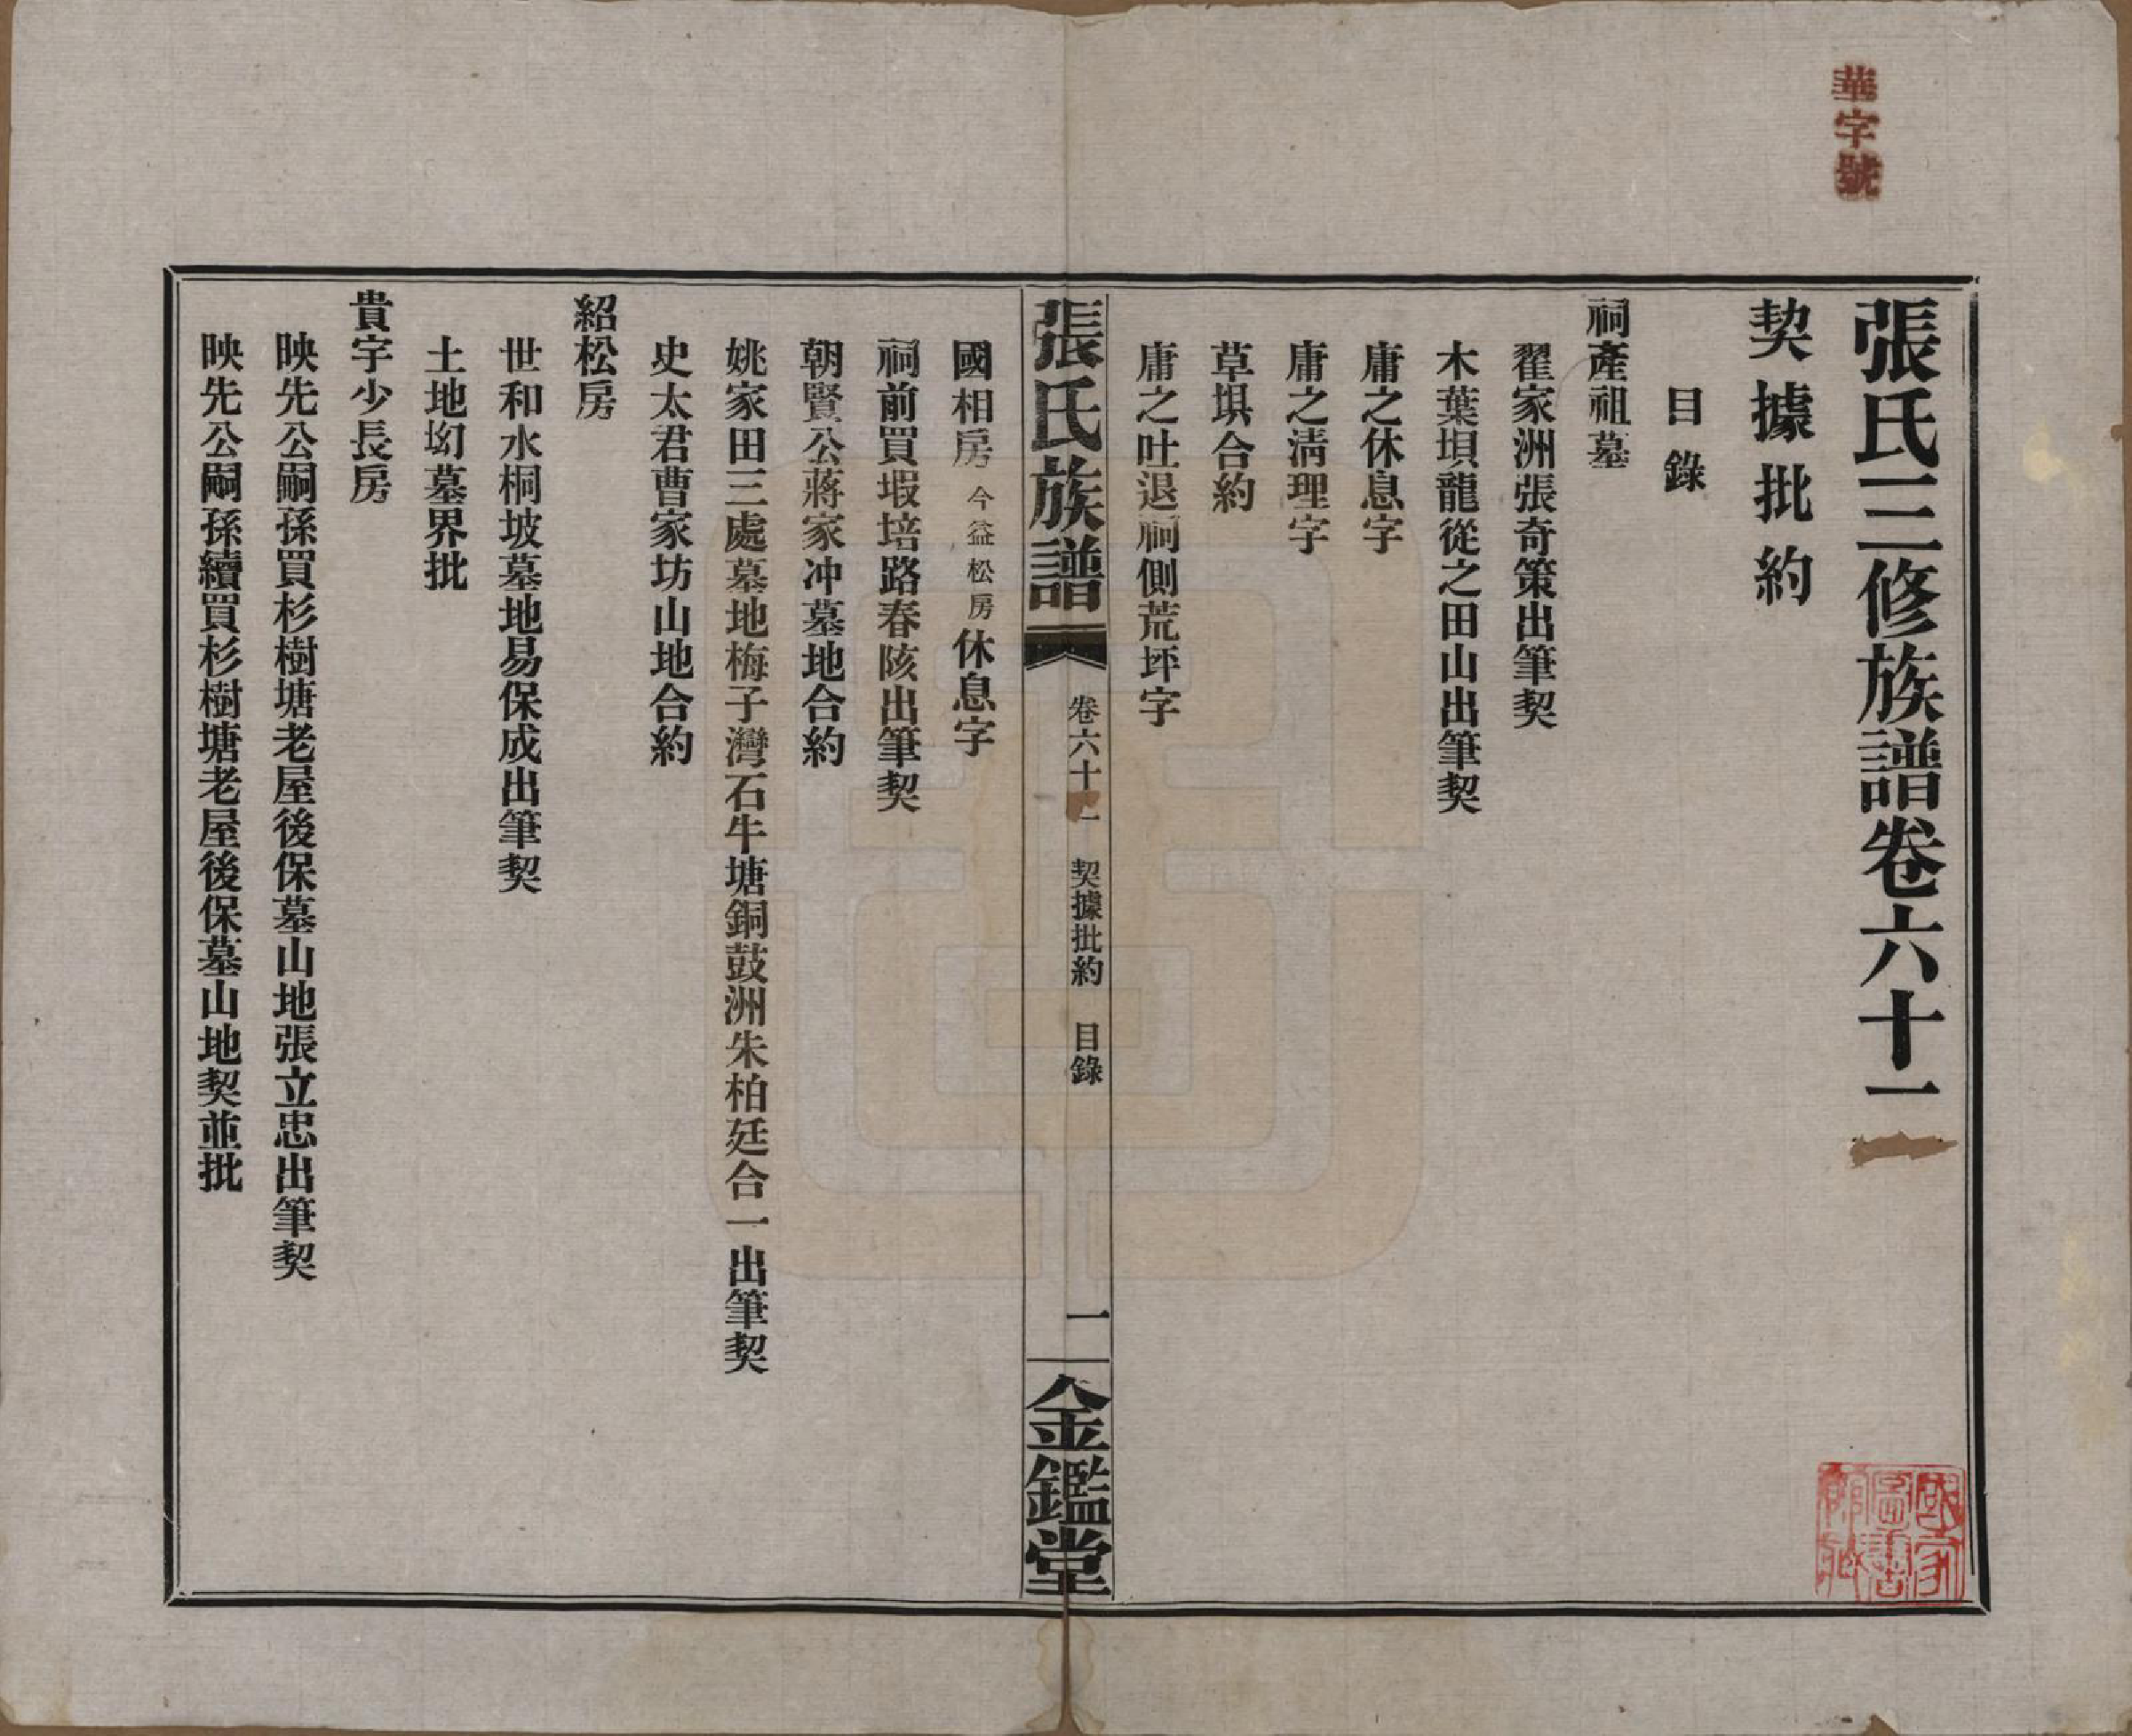 華字號
張氏三修族譜卷六十一
契據批約
目錄
祠產祖墓
翟家洲張奇策出筆契
木葉垻龍從之田山出筆契
庸之休息字
庸之清理字
草垻合約
庸之吐退祠側荒坪字
張氏族譜
卷六十一
契據批約
目錄
一
金鑑堂
國相房今益松房休息字
祠前買塅培路春陔出筆契
朝賢公蔣家冲墓地合約
姚家田三處墓地梅子灣石牛塘銅鼓洲朱柏廷合一出筆契
史太君曹家坊山地合約
紹松房
世和水桐坡墓地易保成出筆契
土地㘭墓界批
貴宇少長房
映先公嗣孫買杉樹塘老屋後保墓山地張立忠出筆契
映先公嗣孫續買杉樹塘老屋後保墓山地契並批
國家圖書館藏